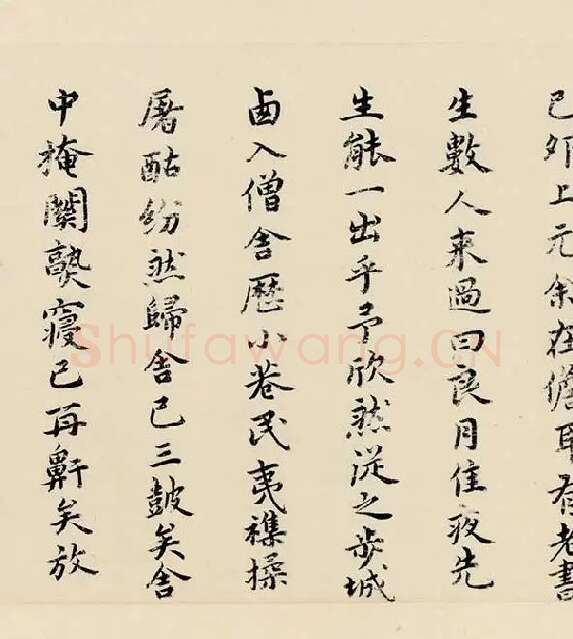 己卯上元余在儋耳有老書
生數人來過曰良月佳夜先
生能一出乎予欣然從之步城
西入僧舍歷小巷民夷雜揉
屠酤紛然歸舍已三鼓矣舍
中掩關熟寢已再鼾矣放
Shufawang.CN